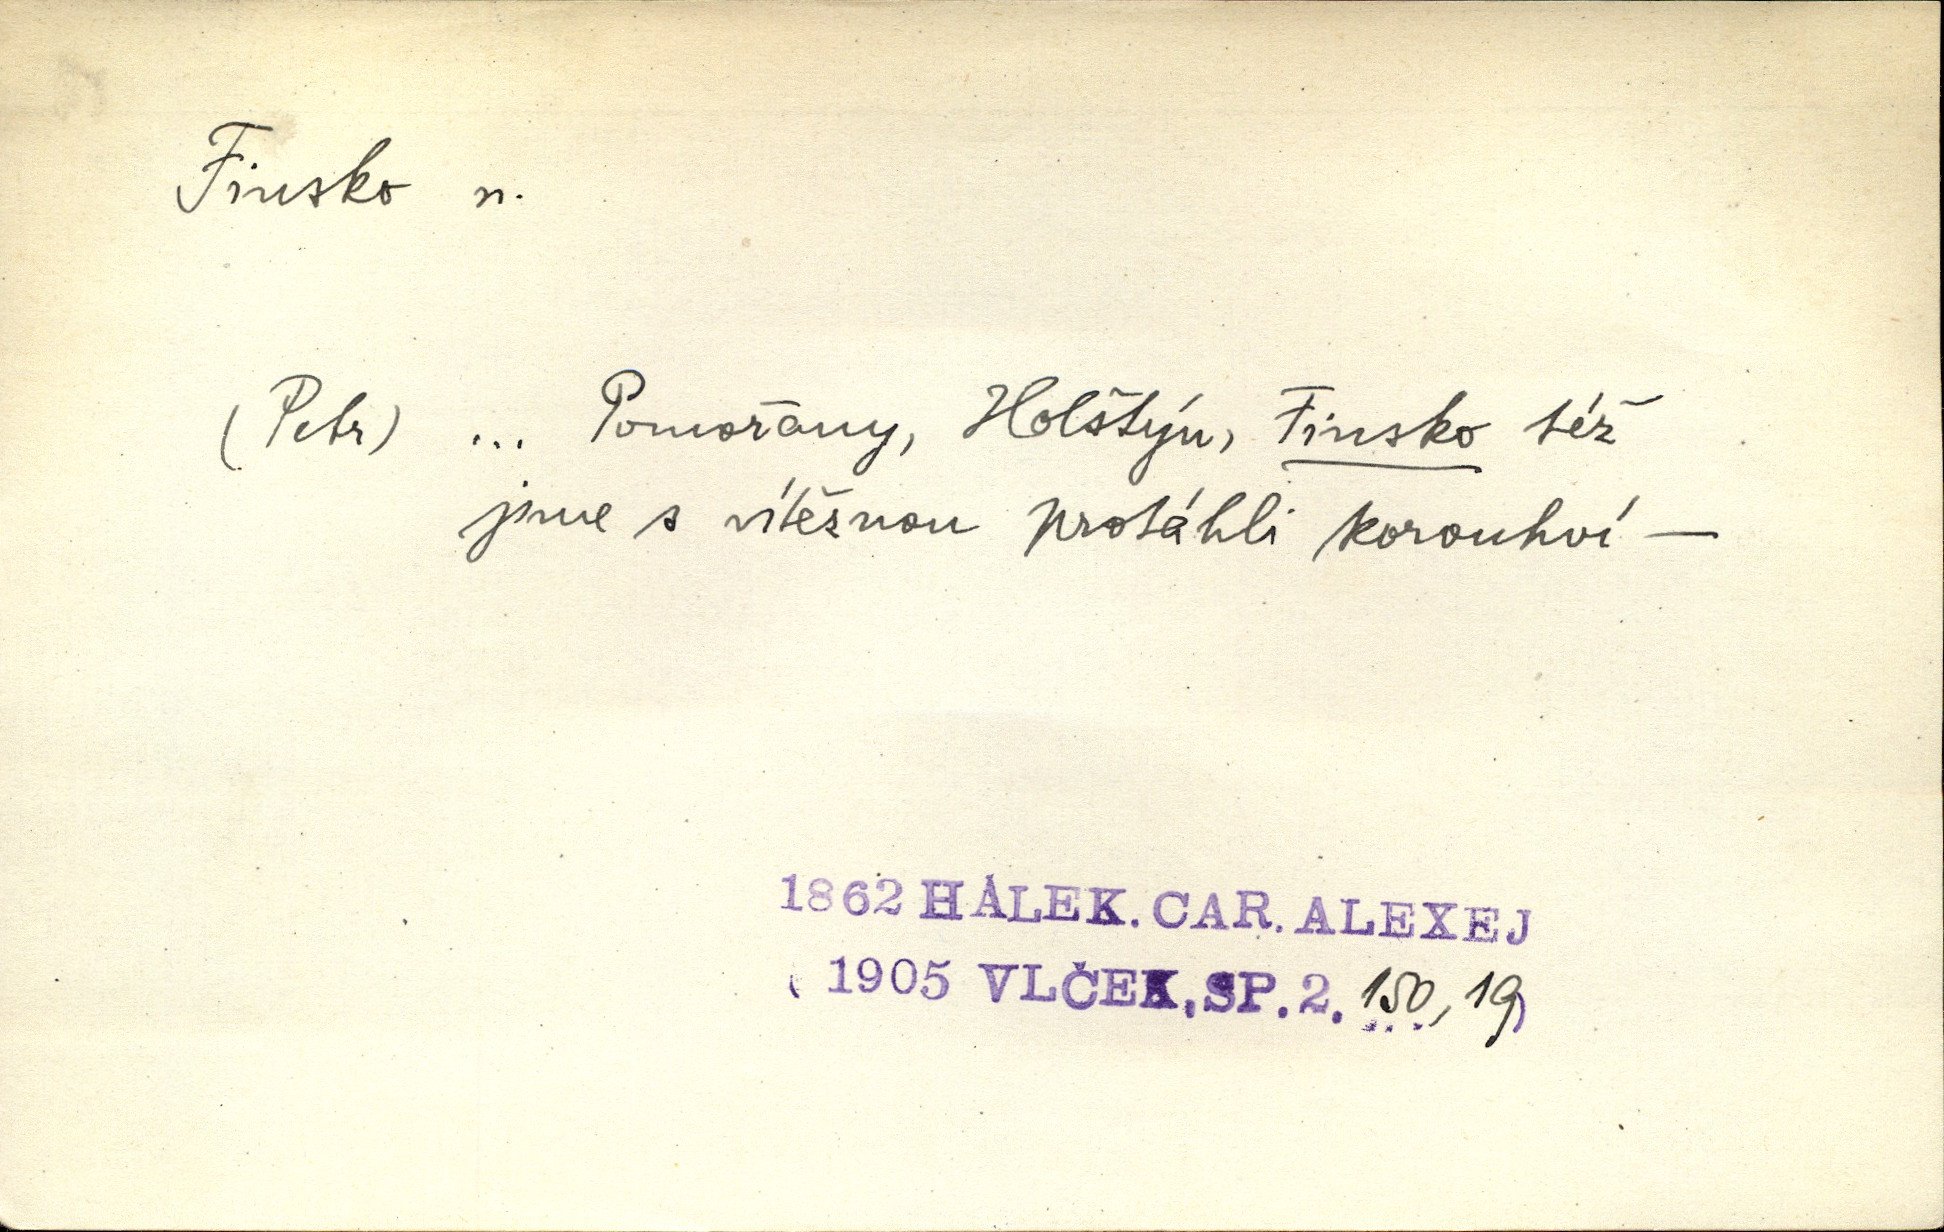 Finsko n.
(Petr) ... Pomořany, Holštýn, Finsko též
jsme s vítěznou protáhli korouhví —
1862 HÁLEK. CAR. ALEXEJ
( 1905 VLČEK, SP. 2. 150, 19)